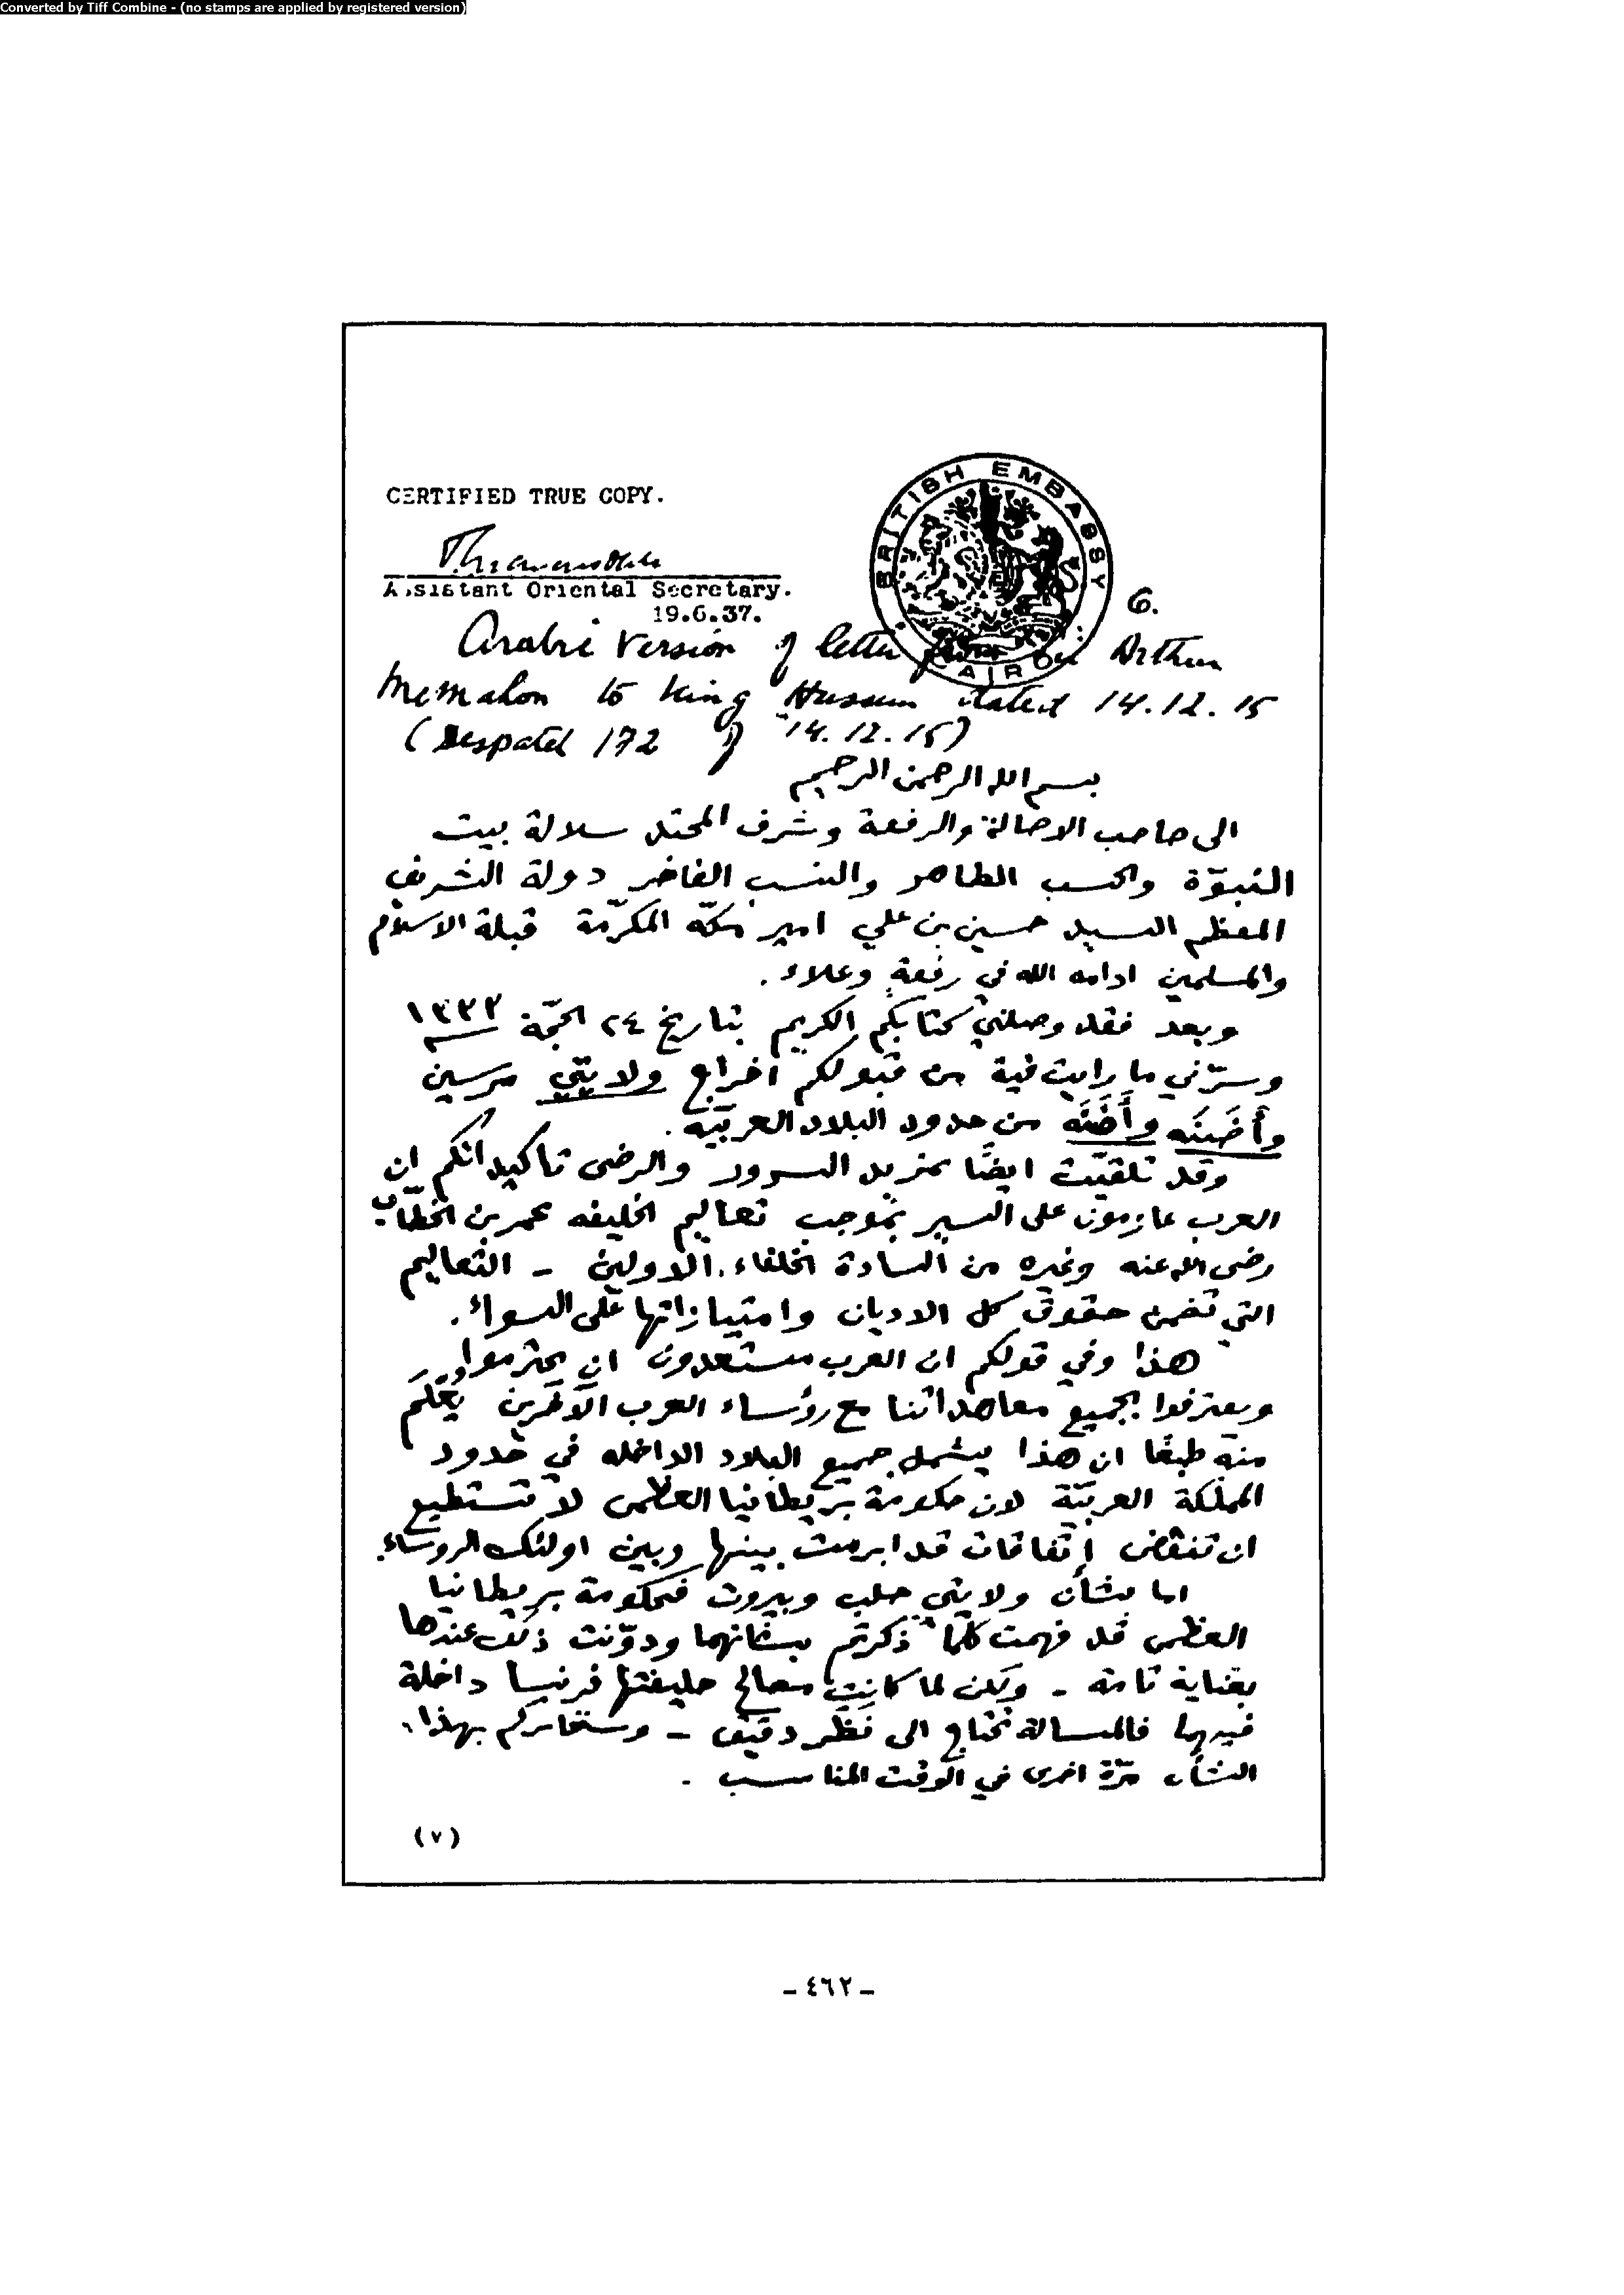 Converted by Tiff Combine - (no stamps are applied by registered version)
CERTIFIED TRUE COPY.
BRITISH EMBASSY
CAIRO
Assistant Oriental Secretary.
19.6.37.
6.
Arabic version of letter from Sir Arthur
McMahon to King Hussein dated 14.12.15
(Despatch 172 of 14.12.15)
بسم الله الرحمن الرحيم
الى صاحب الاصالة والرفعة وشرف المحتد سلالة بيت
النبوّة والحسب الطاهر والنسب الفاخر دولة الشريف
المعظم السيد حسين بن علي امير مكّة المكرّمة قبلة الاسلام
والمسلمين ادامه الله في رفعةٍ وعلاء .
وبعد فقد وصلني كتابكم الكريم بتاريخ ٢٤ الحجّة ١٣٣٣
وسرّني ما رايت فيه من قبولكم اخراج ولايتي مرسين
وأضَنَه وأَضَنَه من حدود البلاد العربيّة .
وقد تلقيّت ايضًا بمزيد السرور والرضى تاكيداتكم ان
العرب عازمون على السير بموجب تعاليم الخليفه عمر بن الخطّاب
رضى الله عنه وغيره من السادة الخلفاء الاولين - التعاليم
التي تضمن حقوق كل الاديان وامتيازاتها على السواء .
هذا وفي قولكم ان العرب مستعدون ان يحترموا
ويعترفوا بجميع معاهداتنا مع رؤساء العرب الآخرين يُعْلَم
منه طبعًا ان هذا يشمل جميع البلاد الداخله في حدود
المملكة العربيّة لان حكومة بريطانيا العظمى لا تستطيع
ان تنقض إتفاقات قد ابرمت بينها وبين اولئك الروساء.
اما بشأن ولايتي حلب وبيروت فحكومة بريطانيا
العظمى قد فهمت كلّما ذكرتم بشانهما ودوّنت ذلك عندها
بعناية تامة - ولكن لما كانت مصالح حليفتها فرنسا داخلة
فيهما فالمسالة تحتاج الى نظر دقيق - وسنخابركم بهذا
الشأن مرّة اخرى في الوقت المناسب .
(٧)
- ٤٦٢ -